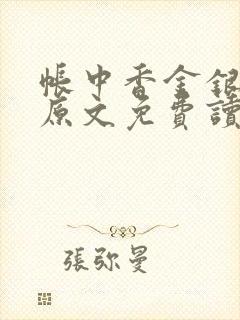 帳中香金銀
原文免費讀
張弥曼